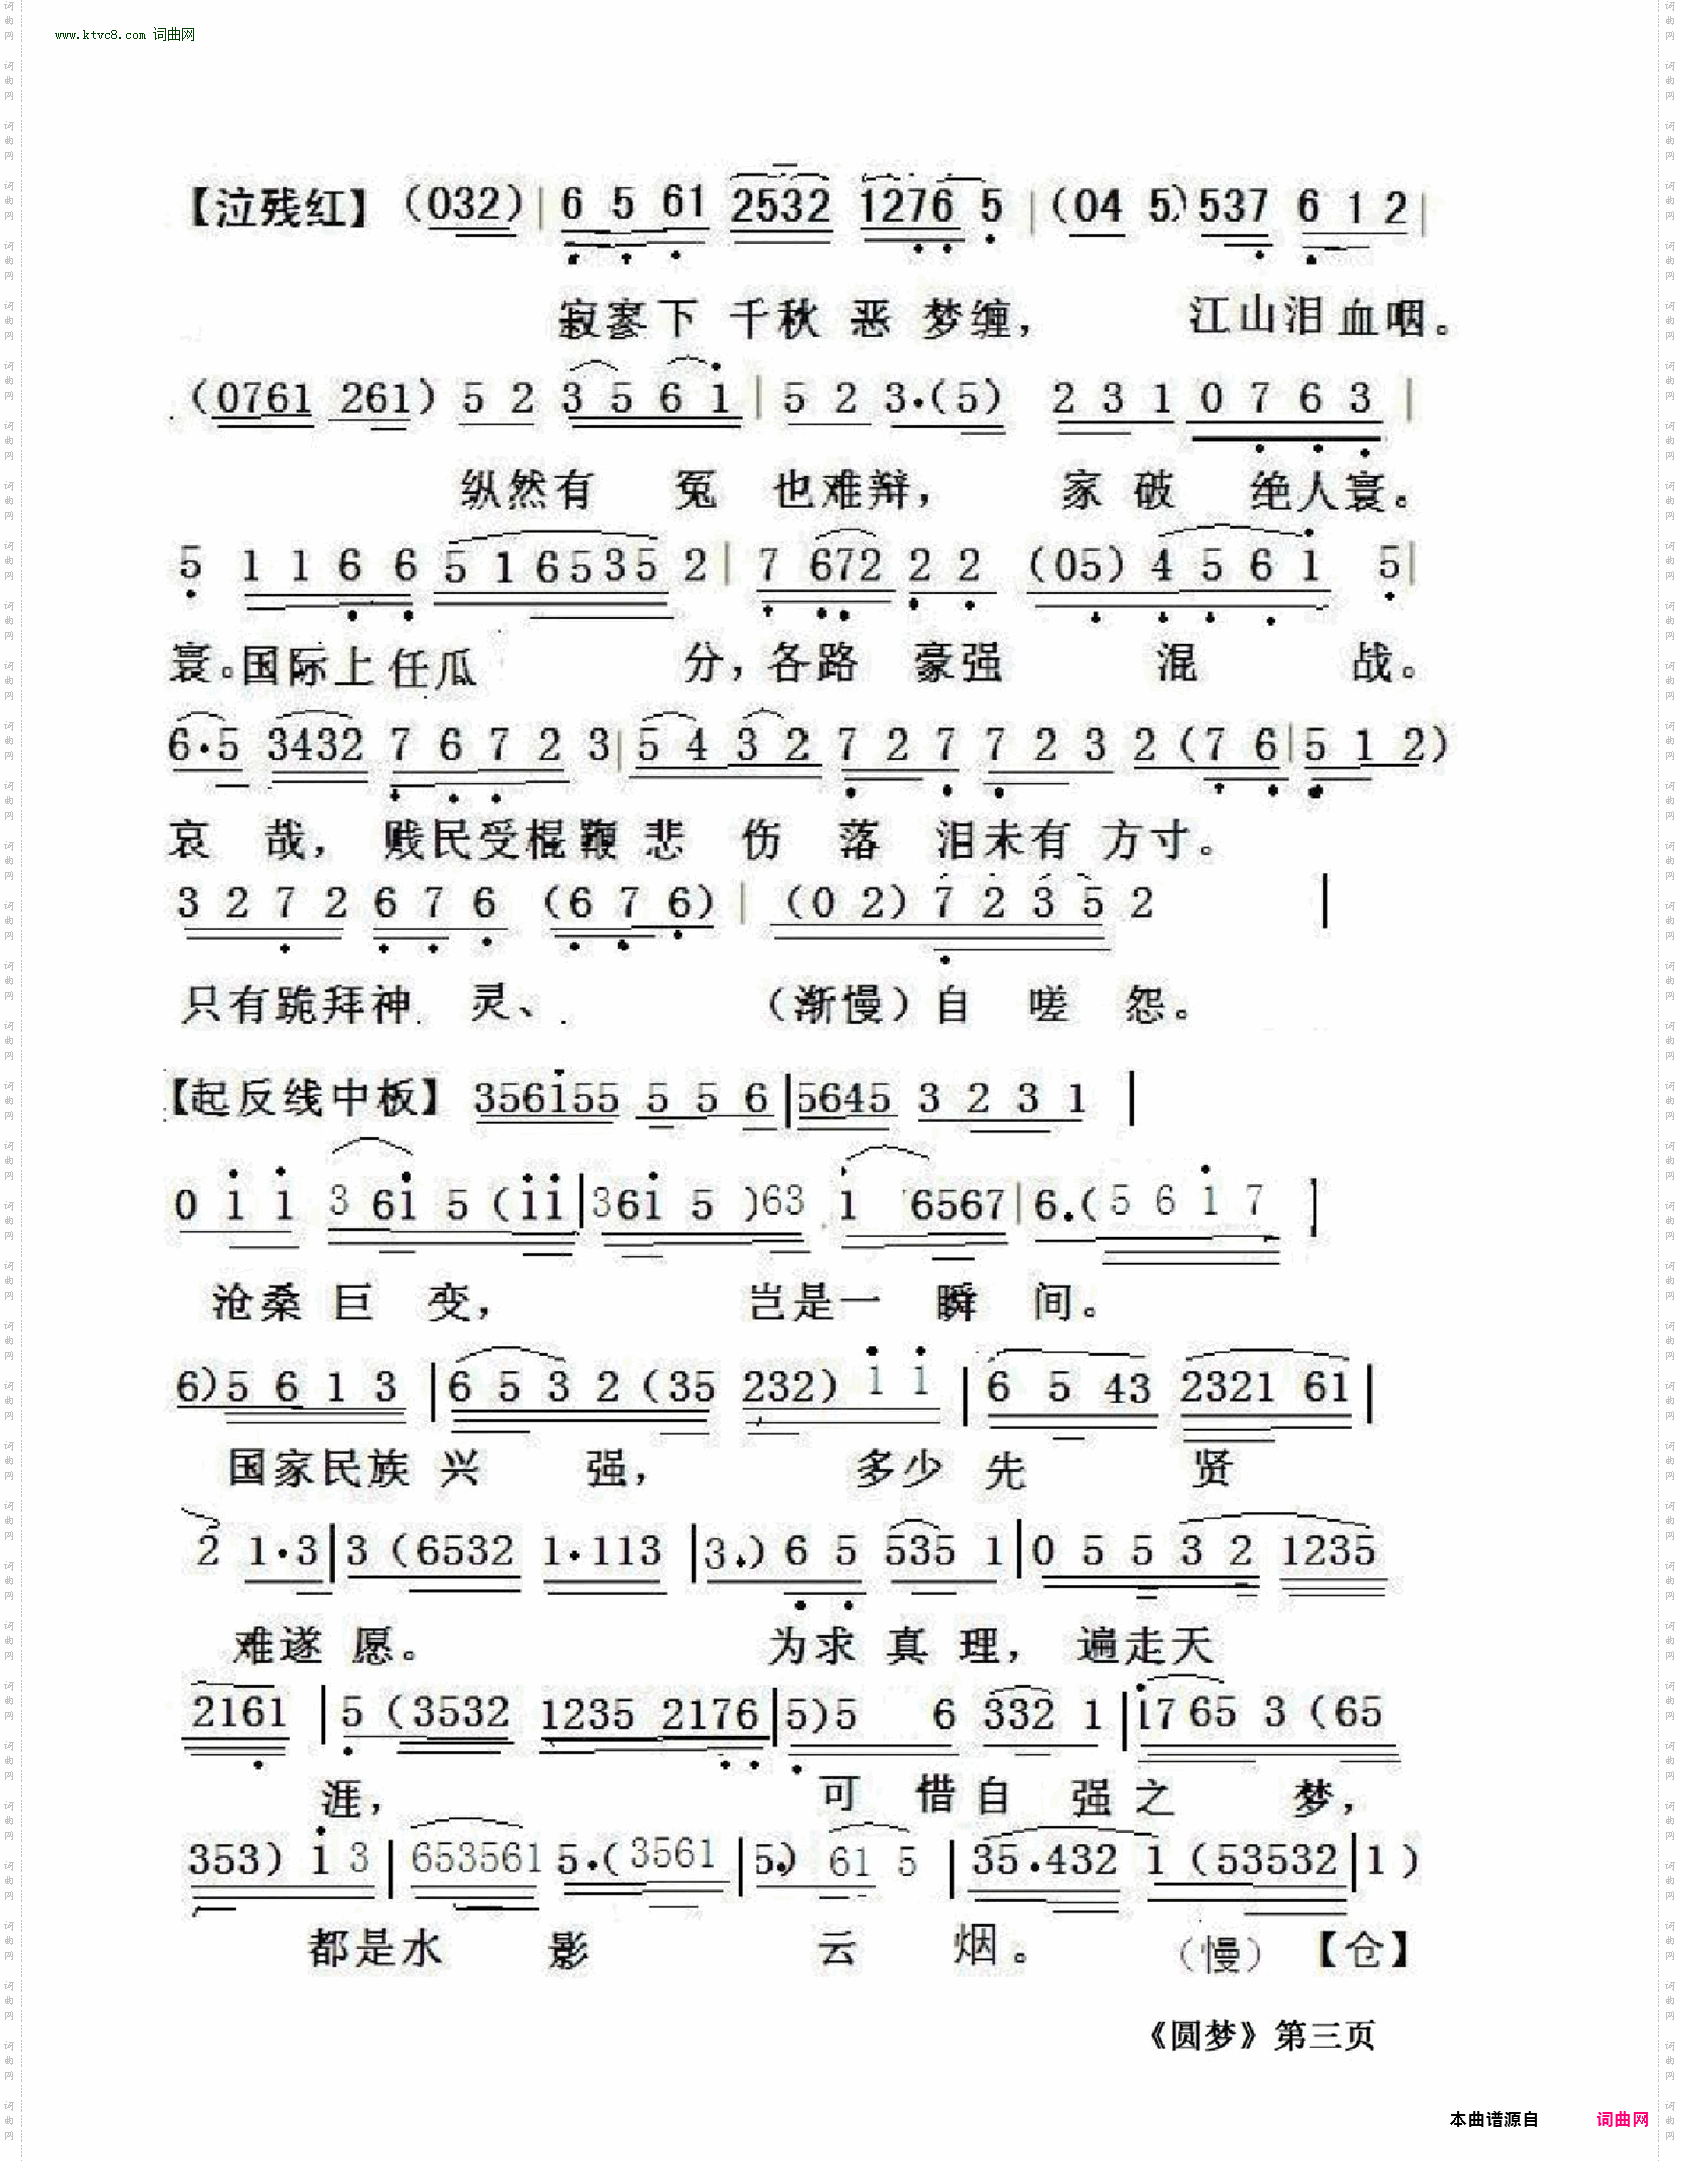 www.ktvc8.com 词曲网
【泣残红】（032）| 6 5 61 2532 1276 5 |（04 5）537 6 1 2 |
寂寥下 千秋 恶 梦缠， 江山泪血咽。
（0761 261）5 2 3 5 6 1 | 5 2 3·（5） 2 3 1 0 7 6 3 |
纵然有 冤 也难辩， 家 破 绝人寰。
5 1 1 6 6 5 1 6535 2 | 7 672 2 2 （05）4 5 6 1 5 |
寰。国际上任瓜 分，各路 豪强 混 战。
6·5 3432 7 6 7 2 3 | 5 4 3 2 7 2 7 7 2 3 2（7 6 | 5 1 2）
哀 哉， 贱民受棍鞭 悲 伤 落 泪未有 方寸。
3 2 7 2 6 7 6 （6 7 6）| （0 2）7 2 3 5 2 |
只有跪拜神 灵、 （渐慢）自 嗟 怨。
【起反线中板】 356155 5 5 6 | 5645 3 2 3 1 |
0 1 1 3 61 5（11 | 361 5 ）63 1 6567 | 6.（5 6 1 7 ]
沧桑 巨 变， 岂是一 瞬 间。
6）5 6 1 3 | 6 5 3 2（35 232）1 1 | 6 5 43 2321 61 |
国家民族 兴 强， 多少 先 贤
2 1·3 | 3（6532 1·113 | 3.）6 5 535 1 | 0 5 5 3 2 1235
难遂 愿。 为求 真 理， 遍走天
2161 | 5（3532 1235 2176 | 5）5 6 332 1 | 1765 3（65
涯， 可 惜自 强之 梦，
353）1 3 | 653561 5.（3561 | 5.）61 5 | 35.432 1（53532 | 1）
都是水 影 云 烟。 （慢） 【仓】
《圆梦》第三页
本曲谱源自 词曲网